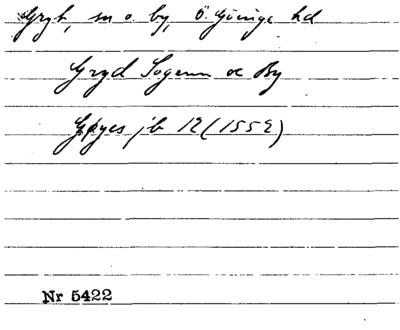 Gryt, sn o. by, Ö. Göinge hd
Gryd Sogenn oc By
Gøyes jb 12 (1552)
Nr 5422